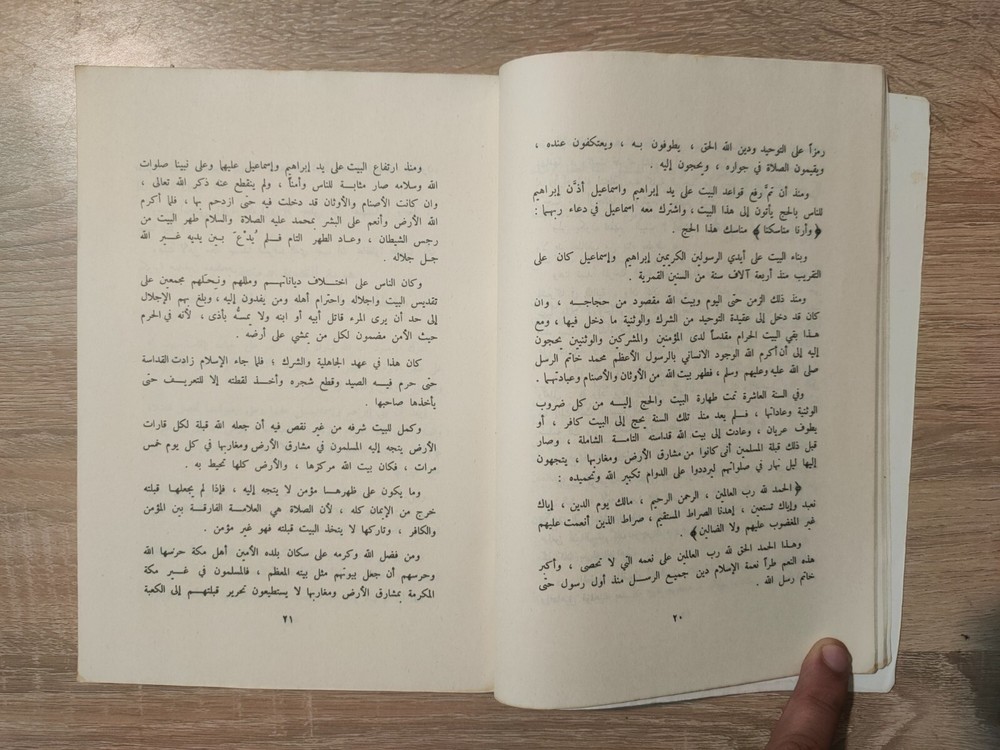 رمزاً على التوحيد ودين الله الحق ، يطوفون بـه ، ويعتكفون عنده ،
ويقيمون الصلاة في جواره ، ويحجون إليه .
ومنذ أن تمَّ رفع قواعد البيت على يد إبراهيم واسماعيل أذَّن إبراهيم
للناس بالحج يأتون إلى هذا البيت ، واشترك معه اسماعيل في دعاء ربهما :
﴿وأرنا مناسكنا﴾ مناسك هذا الحج .
وبناء البيت على أيدي الرسولين الكريمين إبراهيم وإسماعيل كان على
التقريب منذ أربعة آلاف سنة من السنين القمرية .
ومنذ ذلك الزمن حتى اليوم وبيت الله مقصود من حجاجـه ، وان
كان قد دخل إلى عقيدة التوحيد من الشرك والوثنية ما دخل فيها ، ومع
هـذا بقي البيت الحرام مقدساً لدى المؤمنين والمشركين والوثنيين يحجون
إليه إلى أن أكرم الله الوجود الانساني بالرسول الأعظم محمد خاتم الرسل
صلى الله عليه وعليهم وسلم ، فطهر بيت الله من الأوثان والأصنام وعبادتهما .
وفي السنة العاشرة تمت طهارة البيت والحج إليـه من كل ضروب
الوثنية وعاداتها ، فـلم يعد منذ تلك السنة يحج إلى البيت كافر ، أو
يطوف عريان ، وعادت إلى بيت الله قداسته التامـة الشاملة ، وصار
قبل ذلك قبلة المسلمين أنى كانوا من مشارق الأرض ومغاربها ، يتجهون
إليها ليل نهار في صلواتهم ليرددوا على الدوام تكبير الله وتحميده :
﴿الحمد لله رب العالمين ، الرحمن الرحيم ، مالك يوم الدين ، إياك
نعبد وإياك نستعين ، إهدنا الصراط المستقيم ، صراط الذين أنعمت عليهم
غير المغضوب عليهم ولا الضالين﴾ .
وهـذا الحمد الحق لله رب العالمين على نعمه التي لا تحصى ، وأكبر
هذه النعم طرأ نعمة الإسلام دين جميـع الرسـل منذ أول رسول حتى
خاتم رسل الله .
٢٠
ومنذ ارتفاع البيت على يد إبراهيم وإسماعيل عليهما وعلى نبينا صلوات
الله وسلامه صار مثابـة للناس وأمناً ، ولم ينقطع عنه ذكر الله تعالى ،
وان كانت الأصنام والأوثان قد دخلت فيه حتى ازدحم بها ، فلما أكرم
الله الأرض وأنعم على البشر بمحمد عليه الصلاة والسلام طهر البيت من
رجس الشيطان ، وعـاد الطهر التام فـلم يُدْعَ بـين يديه غـير الله
جـل جلاله .
وكان الناس على اختـلاف دياناتهـم ومللهم ونحلهم مجمعين على
تقديس البيت واجلاله واحترام أهله ومن يفدون إليه ، وبلغ بهم الإجلال
إلى حد أن يرى المرء قاتل أبيه أو ابنه ولا يمسُّه بأذى ، لأنه في الحرم
حيث الأمن مضمون لكل من يمشي على أرضه .
كان هذا في عهد الجاهلية والشرك ؛ فلما جاء الإسلام زادت القداسة
حتى حرم فيـه الصيد وقطع شجره وأخـذ لقطته إلا للتعريـف حتى
يأخذها صاحبها .
وكمل للبيت شرفه من غير نقص فيه أن جعله الله قبلة لكل قارات
الأرض يتجه إليه المسلمون في مشارق الأرض ومغاربها في كل يوم خمس
مرات ، فكان بيت الله مركزها ، والأرض كلها تحيط به .
وما يكون على ظهرهـا مؤمن لا يتجه إليه ، فإذا لم يجعلها قبلته
خرج من الإيمان كله ، لأن الصلاة هي العلامـة الفارقـة بين المؤمن
والكافر ، وتاركها لا يتخذ البيت قبلته فهو غير مؤمن .
ومن فضل الله وكرمه على سكان بلده الأمين أهل مكة حرسها الله
وحرسهم أن جعل بيوتهم مثل بيته المعظم ، فالمسلمون في غـير مكة
المكرمة بمشارق الأرض ومغاربها لا يستطيعون تحرير قبلتهـم إلى الكعبة
٢١